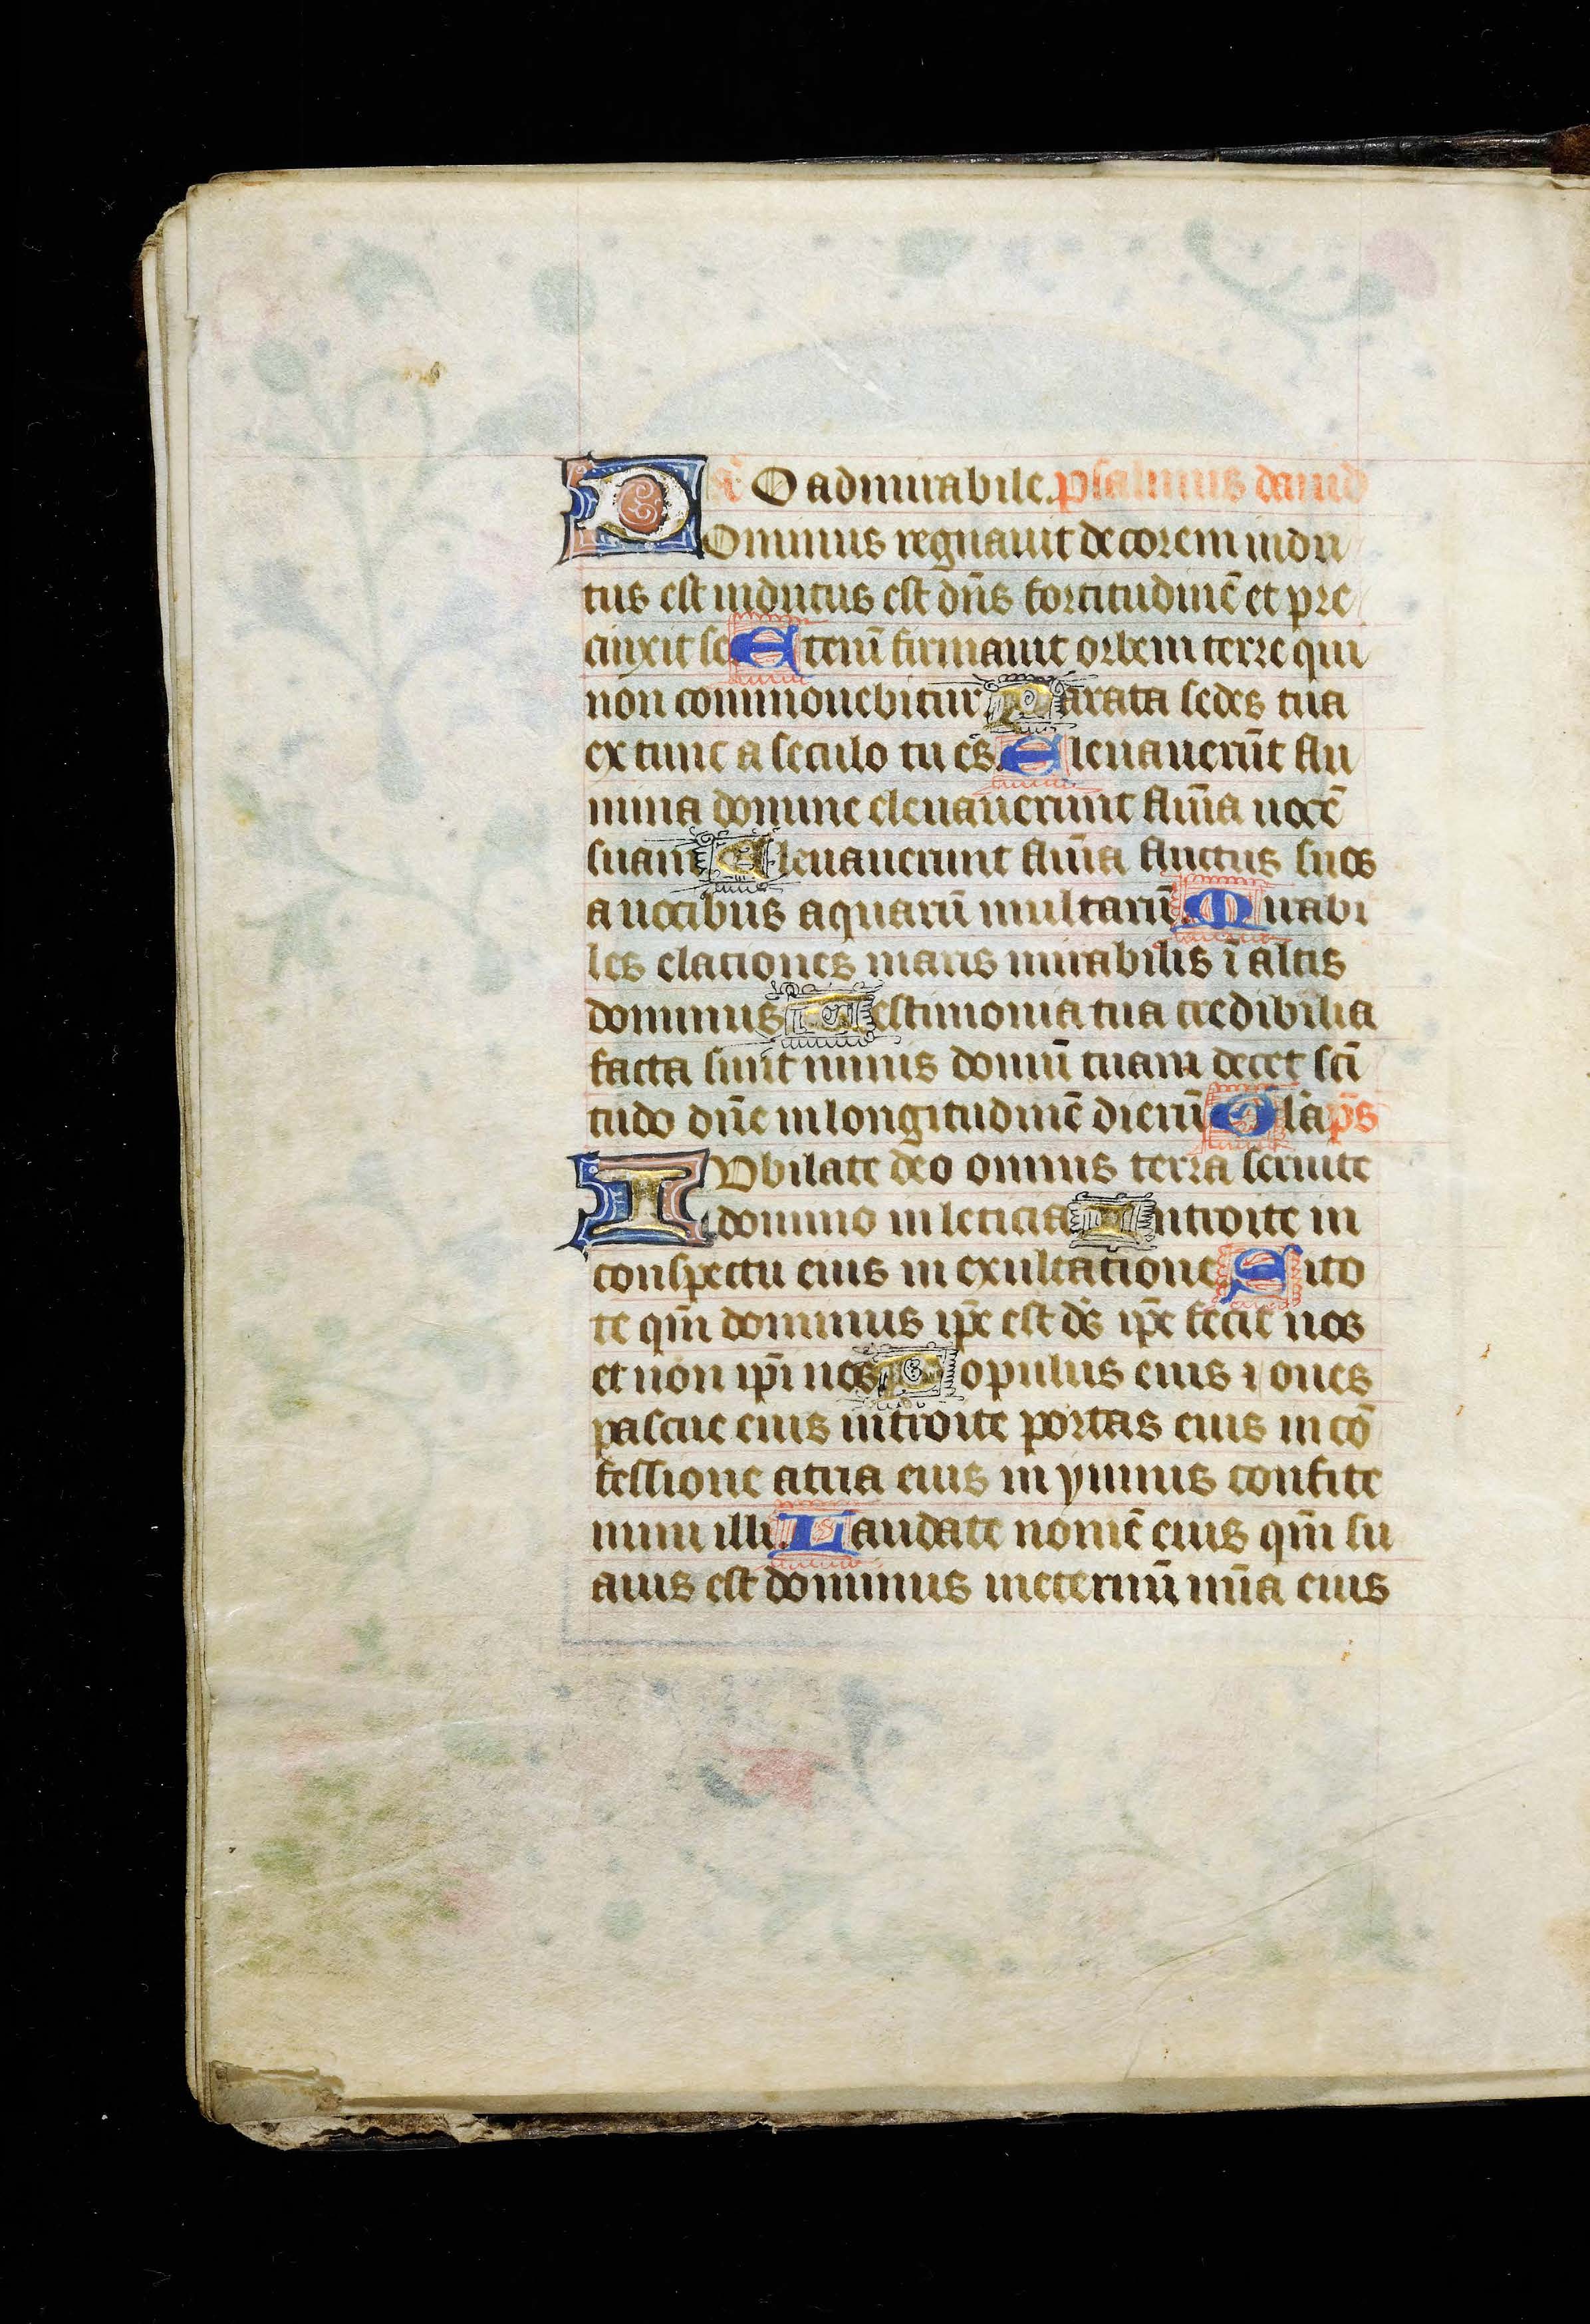 a͞ O admirabile. psalmus dauid
Dominus regnauit decorem indu
tus est indutus est dn̄s fortitudinē et pre
cinxit se Etenī firmauit orbem terre qui
non commouebitur Parata sedes tua
ex tunc a seculo tu es. Eleuauerūt flu
mina domine eleuauerunt flūīa uocē
suam Eleuauerunt flūīa fluctus suos
a uocibus aquarū multarū. Mirabi
les elationes maris mirabilis ī altis
dominus Testimonia tua credibilia
facta sunt nimis domū tuam decet scī
tudo dn̄e in longitudinē dierū Gl̄a ps̄
IUbilate deo omnis terra seruite
domino in leticia Introite in
conspectu eius in exultatione Scito
te qm̄ dominus ip̄e est ds̄ ip̄e fecit nos
et non ip̄i nos Populus eius ⁊ oues
pascue eius introite portas eius in cō
fessione atria eius in ymnis confite
mini illi. Laudate nomē eius qm̄ su
auis est dominus ineternū mīa eius